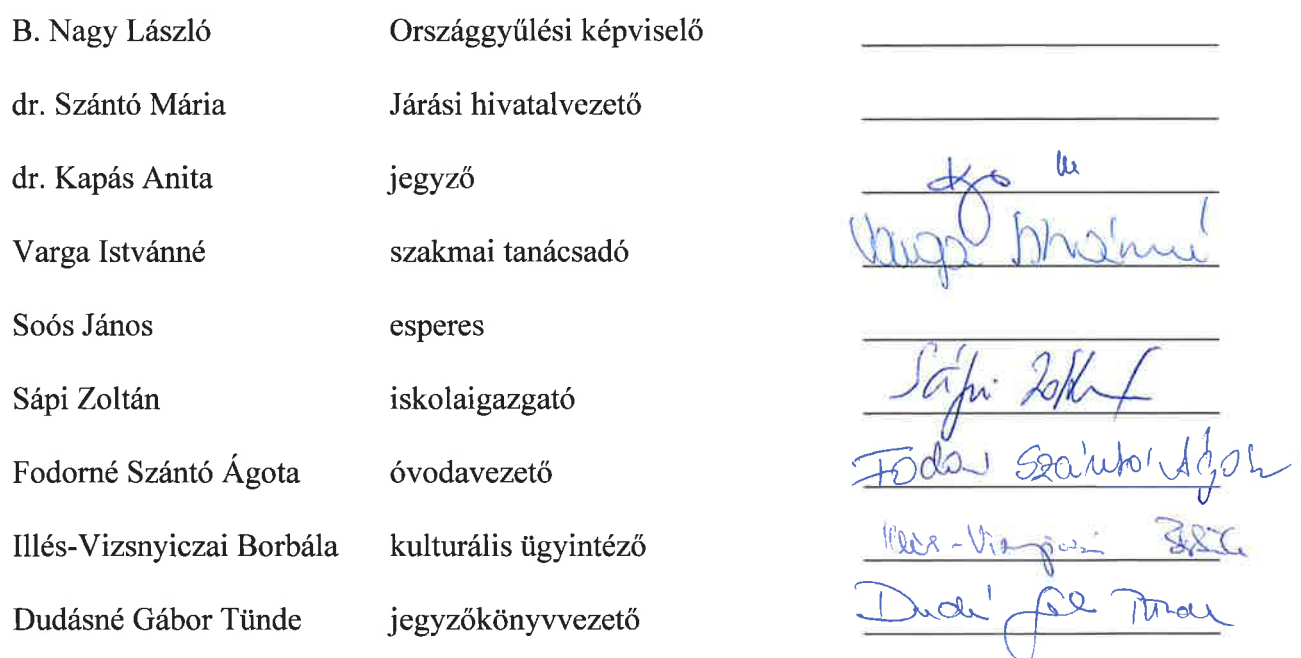 B. Nagy László Országgyűlési képviselő
dr. Szántó Mária Járási hivatalvezető
dr. Kapás Anita jegyző
Varga Istvánné szakmai tanácsadó Varga Istvánné
Soós János esperes
Sápi Zoltán iskolaigazgató Sápi Zoltán
Fodorné Szántó Ágota óvodavezető Fodorné Szántó Ágota
Illés-Vizsnyiczai Borbála kulturális ügyintéző Illés-Vizsnyiczai
Dudásné Gábor Tünde jegyzőkönyvvezető Tünde